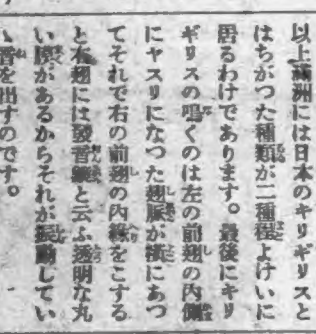 以上満洲には日本のキリギリスと
はちがつた種類が二種程よけいに
居るわけであります。最後にキリ
ギリスの鳴くのは左の前翅の内側
にヤスリになつた翅脈が横にあつ
てそれで右の前翅の内緣をこする
と右翅には發音鏡と云ふ透明な丸
い膜があるからそれが振動してい
ゝ音を出すのです。